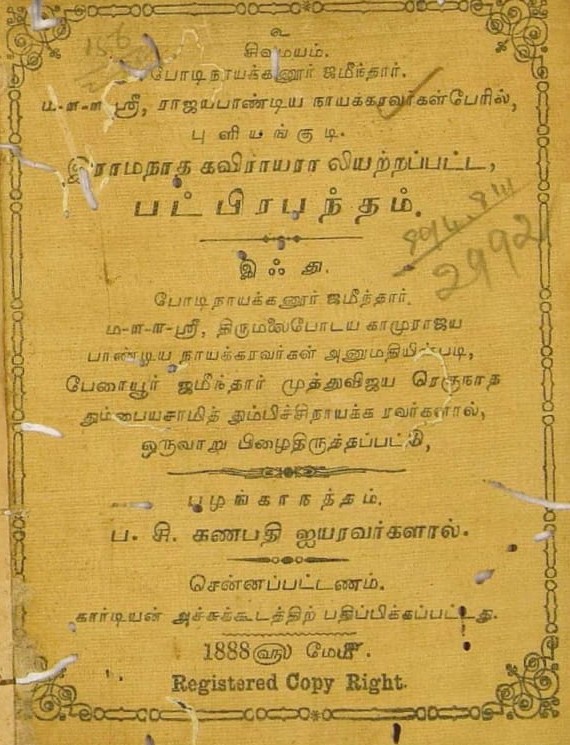 உ
சிவமயம்.
போடிநாயக்கனூர் ஜமீந்தார்.
ம-ள-ள ஸ்ரீ, ராஜயபாண்டிய நாயக்கரவர்கள்பேரில்,
புளியங்குடி.
இராமநாத கவிராயரா லியற்றப்பட்ட,
பட்பிரபந்தம்.
இஃது.
போடிநாயக்கனூர் ஜமீந்தார்.
ம-ள-ள-ஸ்ரீ, திருமலைபோடய காமுராஜய
பாண்டிய நாயக்கரவர்கள் அனுமதியின்படி,
பேரையூர் ஜமீந்தார் முத்துவிஜய ரெகுநாத
தும்பையசாமித் தும்பிச்சிநாயக்க ரவர்களால்,
ஒருவாறு பிழைதிருத்தப்பட்டு,
பழங்காநத்தம்.
ப. சி. கணபதி ஐயரவர்களால்.
சென்னப்பட்டணம்.
கார்டியன் அச்சுக்கூடத்திற் பதிப்பிக்கப்பட்டது.
1888௵ மே௴.
Registered Copy Right.
156
2992